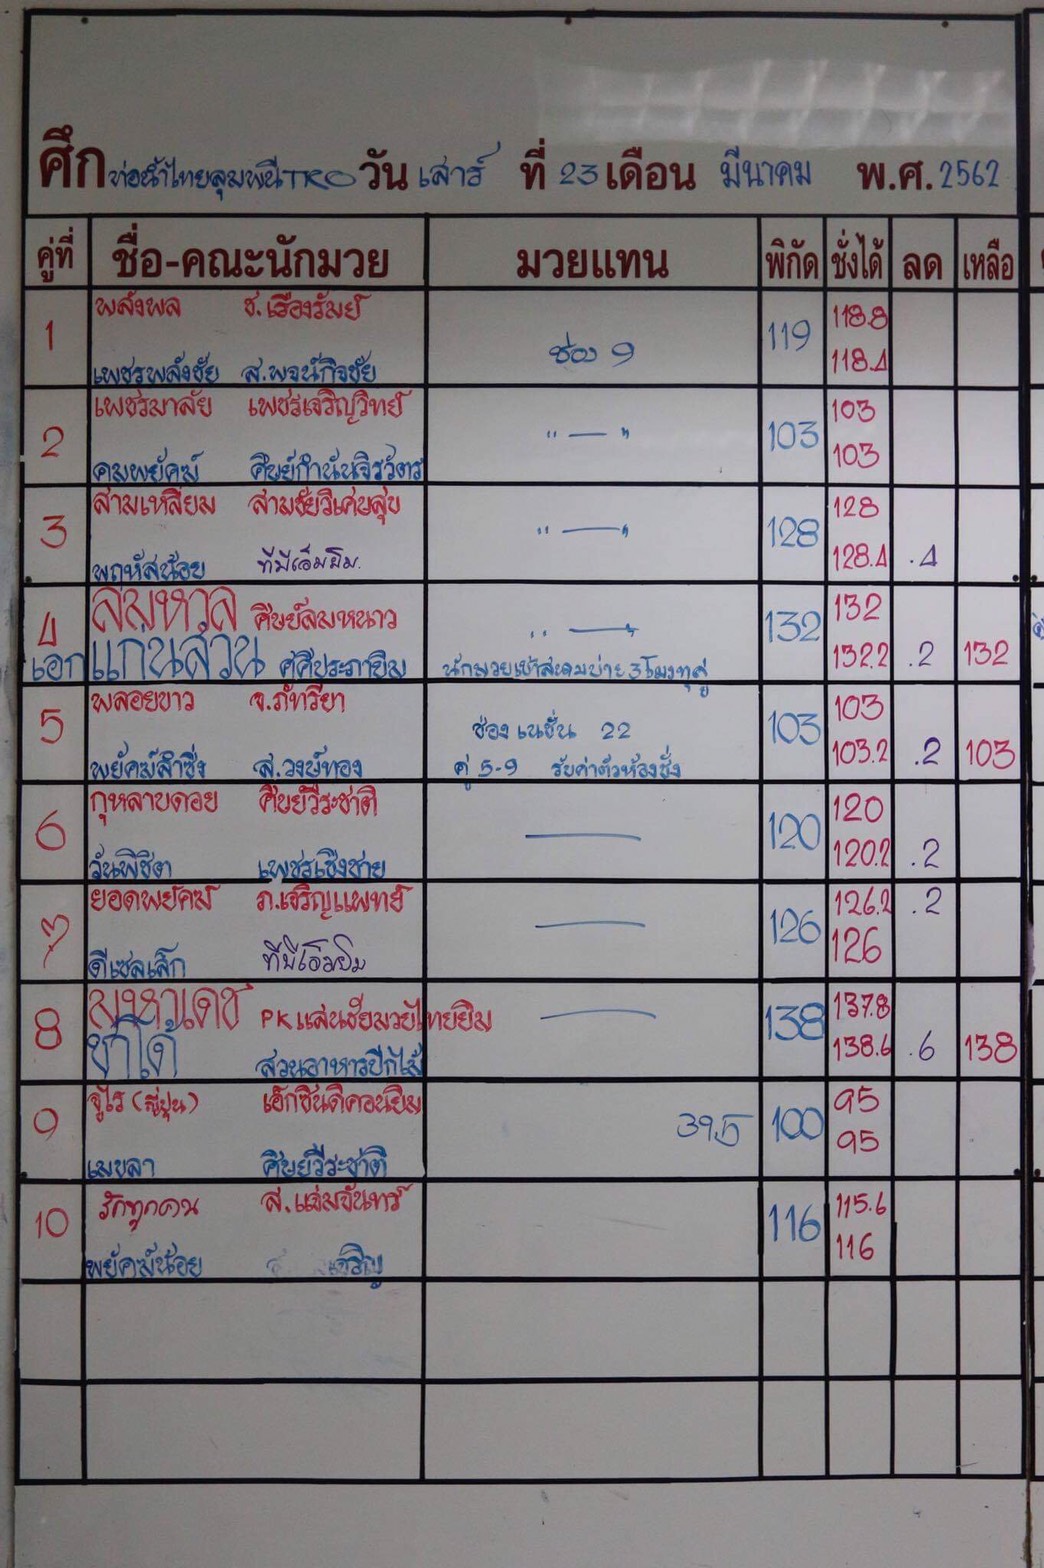 ศึก ท่อน้ำไทยลุมพินี TKO วัน เสาร์ ที่ 23 เดือน มีนาคม พ.ศ. 2562
คู่ที่ ชื่อ-คณะนักมวย มวยแทน พิกัด ชั่งได้ ลด เหลือ
พลังพล ช.เรืองรัมย์ 118.8
1 ช่อง 9 119
เพชรพลังชัย ส.พจน์กิจชัย 118.4
เพชรมาลัย เพชรเจริญวิทย์ 103
2 " — " 103
คมพยัคฆ์ ศิษย์กำนันจิรวัตร 103
สามเหลี่ยม สามชัยวิเศษสุข 128
3 " — " 128
พฤหัสน้อย ทีมีเอ็มยิม. 128.4 .4
สิงหาส ศิษย์ลมหนาว 132
4 " — " 132
เอก แก่นส้วน ศศิประภายิม นักมวยเข้าสนามบ่าย 3 โมงทุกคู่ 132.2 .2 132
พลอยขาว จ.ภัทรียา 103
5 ช่อง เนชั่น 22 103
พยัคฆ์ลำซิ่ง ส.วงษ์ทอง คู่ 5-9 รับค่าตัวห้องชั่ง 103.2 .2 103
กุหลาบดอย ศิษย์วีระชาติ 120
6 — 120
วันพิชิต เพชรเชิงชาย 120.2 .2
ยอดพยัคฆ์ ภ.เจริญแพทย์ 126.2 .2
7 — 126
ดีเซลเล็ก ทีมีเอ็มยิม 126
มหาเดช PKแสนชัยมวยไทยยิม 137.8
8 — 138
ขาโด้ สวนอาหารปีกไม้ 138.6 .6 138
จูไร (ญี่ปุ่น) เอ็กซินดิคอนยิม 95
9 39.5 100
เมขลา ศิษย์วีระชาติ 95
รักทุกคน ส.แสมจันทร์ 115.6
10 116
พยัคฆ์น้อย 116